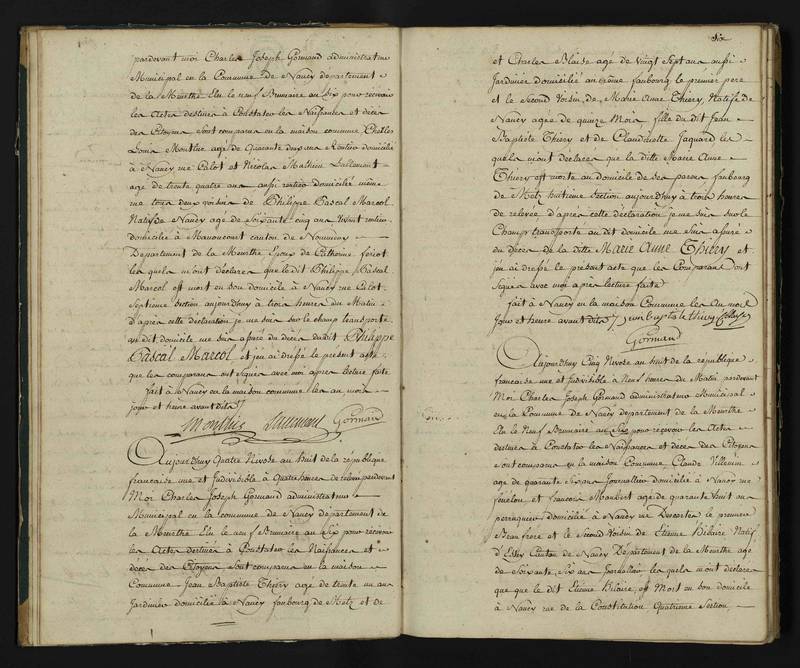 pardevant moi Charles Joseph Gormand administrateur
Municipal en la Commune de Nancy departement
de la Meurthe Elu le neuf Brumaire an Six pour recevoir
les Actes destinés à Constater les Naissances et décès
des Citoyens sont comparus en la maison commune Charles
Louis agé de quarante deux ans Rentier domicilié
à Nancy rue Calot et Nicolas Mathieu Lallemant
agé de trente quatre ans aussi rentier domicilié même
rue tous deux voisin de Philippe Pascal Marcol
Natif de Nancy agé de Soixante cinq ans vivant rentier
domicilié à Manoncourt canton de Nomeny
Departement de la Meurthe Epoux de Catherine
les quels m'ont déclarés que le dit Philippe Pascal
Marcol est mort en son domicile à Nancy rue Calot
Septieme Section aujourd'huy à trois heures du Matin
d'après cette déclaration je me suis sur le champ transporté
au dit domicile me suis assuré du décès du dit Philippe
Pascal Marcol et j'en ai dressé le présent acte
que les comparants ont signés avec moi après lecture faite
fait à Nancy en la maison commune les an mois
jour et heure avant dits
Lallemant Gormand
Aujourd'huy Quatre Nivose an huit de la république
francaise une et Indivisible à Quatre heures de relevée pardevant
Moi Charles Joseph Gormand administrateur
Municipal en la commune de Nancy département de
la Meurthe Elu le neuf Brumaire an Six pour recevoir
les Actes destinés à Constater les Naissances et
décès des Citoyens sont comparus en la maison
Commune Jean Baptiste Thiery agé de trente un ans
Jardinier domicilié à Nancy faubourg de Metz et de
Six
et Charles Blaise agé de vingt Sept ans aussi
Jardinier domicilié au même faubourg, le premier pere
et le Second Voisin, de Marie Anne Thiery, Native de
Nancy agée de quinze Mois fille du dit Jean
Baptiste Thiery et de Claudinette Jaquard les
quels m'ont déclarés que la ditte Marie Anne
Thiery est morte au domicile de ses peres faubourg
de Metz huitieme Section aujourd'huy à trois heures
de relevée d'après cette déclaration je me suis sur le
Champ transporté au dit domicile me suis assuré
du décès de la ditte Marie Anne Thiery et
j'en ai dressé le présent acte que les Comparant ont
Signés avec moi après lecture faite
fait à Nancy en la maison Commune les an mois
Jour et heure avant dits
Gormand
Aujourd'huy Cinq Nivose an huit de la république
francaise une et Indivisible à Neuf heures du Matin pardevant
Moi Charles Joseph Gormand administrateur Municipal
en la Commune de Nancy departement de la Meurthe
Elu le Neuf Brumaire an Six pour recevoir les Actes
destinés à Constater les Naissances et décès des Citoyens
sont comparus en la maison Commune Claude Villemin
agé de quarante Six ans Journallier domicilié à Nancy rue
fénélon, et francois Maubert agé de quarante huit ans
perruquier domicilié à Nancy rue Descartes le premier
Beau frere et le Second Voisin de Etienne Hilaire Natif
d'Essey Canton de Nancy Departement de la Meurthe agé
de Soixante Six ans Journallier les quels m'ont déclarés
que que le dit Etienne Hilaire, est Mort en son domicile
à Nancy rue de la Constitution Quatrieme Section,